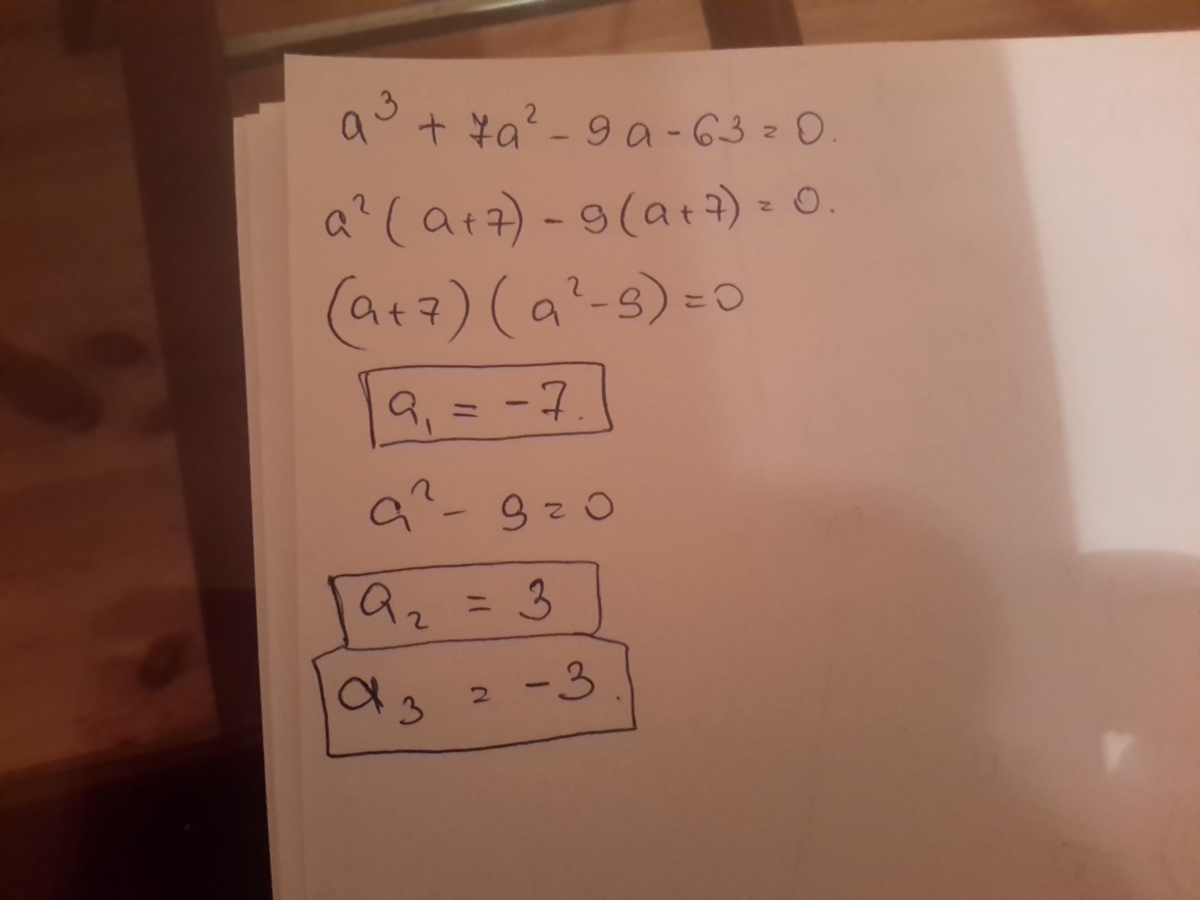 a³ + 7a² - 9a - 63 = 0.
a² (a+7) - 9 (a+7) = 0.
(a+7) (a² - 9) = 0
a₁ = -7.
a² - 9 = 0
a₂ = 3
a₃ = -3.